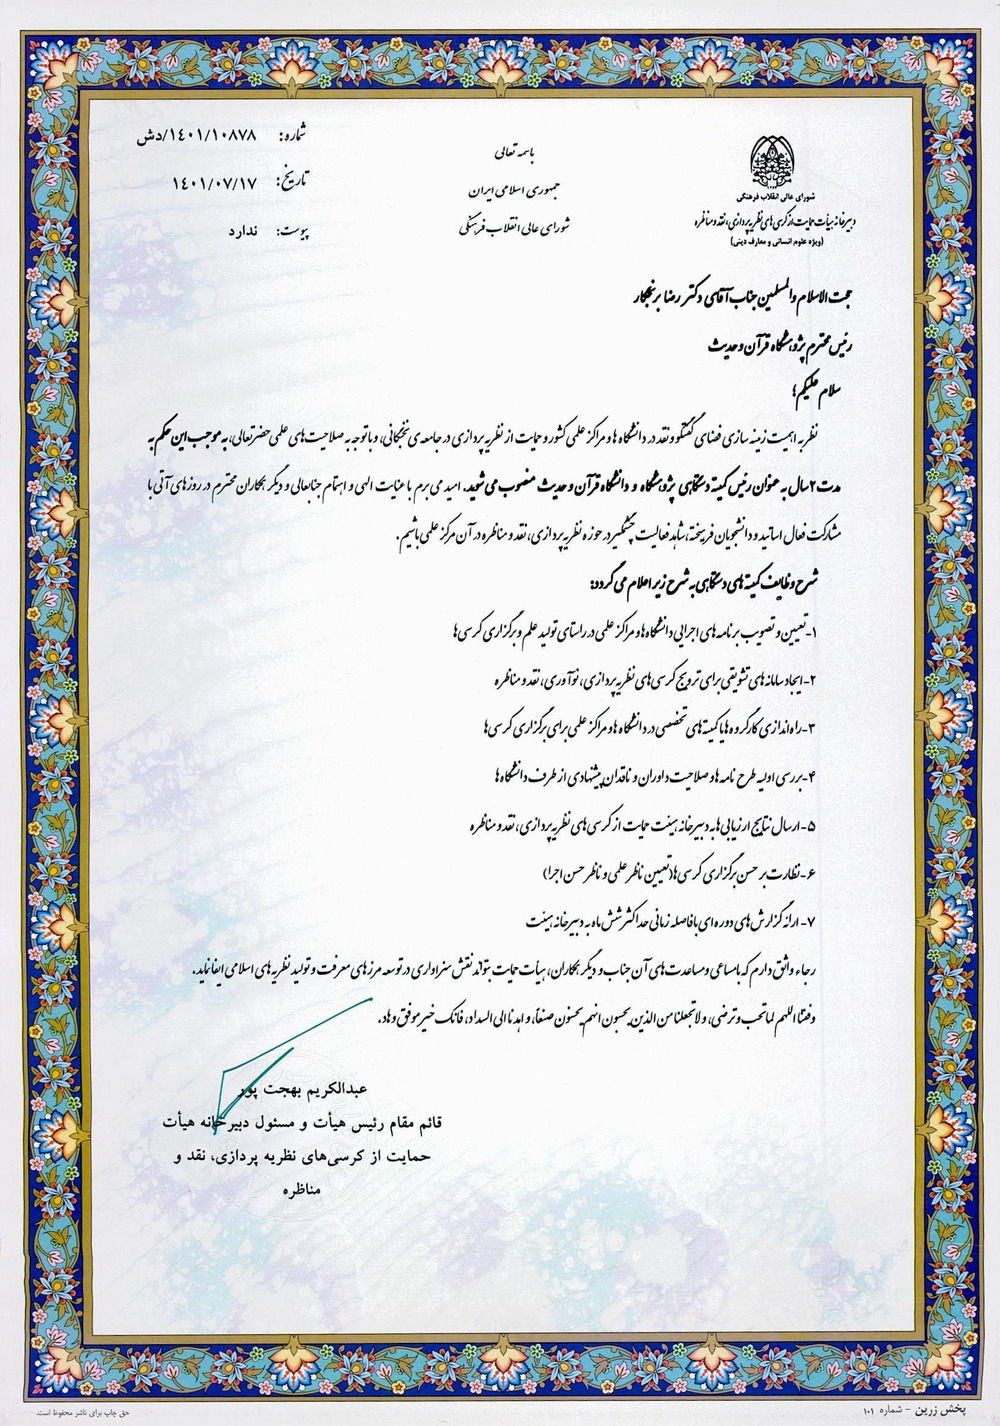 باسمه تعالی
جمهوری اسلامی ایران
شورای عالی انقلاب فرهنگی
شماره: ۱۴۰۱/۱۰۸۷۸/دش
تاریخ: ۱۴۰۱/۰۷/۱۷
پیوست: ندارد
شورای عالی انقلاب فرهنگی
دبیرخانه هیأت حمایت از کرسی های نظریه پردازی، نقد و مناظره
(ویژه علوم انسانی و معارف دینی)
حجت الاسلام والمسلمین جناب آقای دکتر رضا برنجکار
رئیس محترم پژوهشگاه قرآن و حدیث
سلام علیکم؛
نظر به اهمیت زمینه سازی فضای گفتگو و نقد در دانشگاه ها و مراکز علمی کشور و حمایت از نظریه پردازی در جامعه ی نخبگانی، و با توجه به صلاحیت های علمی حضرتعالی، به موجب این حکم به
مدت ۲ سال به عنوان رئیس کمیته دستگاهی پژوهشگاه و دانشگاه قرآن و حدیث منصوب می شوید. امید می برم با عنایت الهی و اهتمام جنابعالی و دیگر همکاران محترم در روزهای آتی با
مشارکت فعال اساتید و دانشجویان فرهیخته، شاهد فعالیت چشمگیر در حوزه نظریه پردازی، نقد و مناظره در آن مرکز علمی باشیم.
شرح وظایف کمیته های دستگاهی به شرح زیر اعلام می گردد:
۱-تعیین و تصویب برنامه های اجرایی دانشگاه ها و مراکز علمی در راستای تولید علم و برگزاری کرسی ها
۲-ایجاد سامانه های تشویقی برای ترویج کرسی های نظریه پردازی، نوآوری، نقد و مناظره
۳-راه اندازی کارگروه ها یا کمیته های تخصصی در دانشگاه ها و مراکز علمی برای برگزاری کرسی ها
۴-بررسی اولیه طرح نامه ها و صلاحیت داوران و ناقدان پیشنهادی از طرف دانشگاه ها
۵-ارسال نتایج ارزیابی ها به دبیرخانه هیئت حمایت از کرسی های نظریه پردازی، نقد و مناظره
۶-نظارت بر حسن برگزاری کرسی ها(تعیین ناظر علمی و ناظر حسن اجرا)
۷-ارائه گزارش های دوره ای با فاصله زمانی حداکثر شش ماه به دبیرخانه هیئت
رجاء واثق دارم که با مساعی و مساعدت های آن جناب و دیگر همکاران، هیأت حمایت بتواند نقش سزاواری در توسعه مرزهای معرفت و تولید نظریه های اسلامی ایفا نماید.
وفقنا اللهم لما تحب و ترضی، و لا تجعلنا من الذین یحسبون انهم یحسنون صنعا، و اهدنا الی السداد، فانک خیر موفق و هاد.
عبدالکریم بهجت پور
قائم مقام رئیس هیأت و مسئول دبیرخانه هیأت
حمایت از کرسی‌های نظریه پردازی، نقد و
مناظره
پخش زرین - شماره ۱۰۱
حق چاپ برای ناشر محفوظ است.